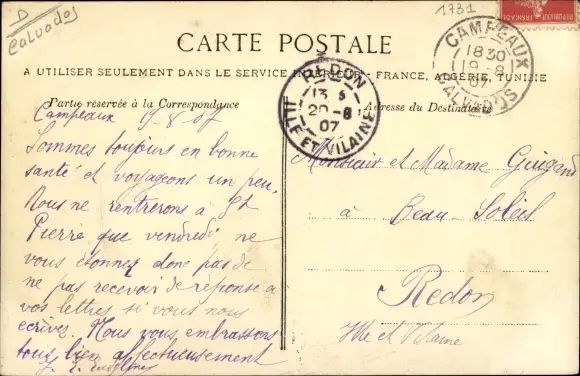 D
Calvados
1731
CARTE POSTALE
A UTILISER SEULEMENT DANS LE SERVICE INTÉRIEUR - FRANCE, ALGÉRIE, TUNISIE
Partie réservée à la Correspondance
Adresse du Destinataire
CAMPEAUX
18 30
19 - 8
07
CALVADOS
REDON
13
20 - 8
07
ILLE ET VILAINE
Campeaux 9-8-07
Sommes toujours en bonne
santé et voyageons un peu.
Nous ne rentrerons à St
Pierre que vendredi ne
vous étonnez donc pas de
ne pas recevoir de réponse à
vos lettres si vous nous
écrivez. Nous vous embrassons
tous bien affectueusement
Monsieur et Madame Guigand
à Beau-Soleil
Redon
Ille et Vilaine